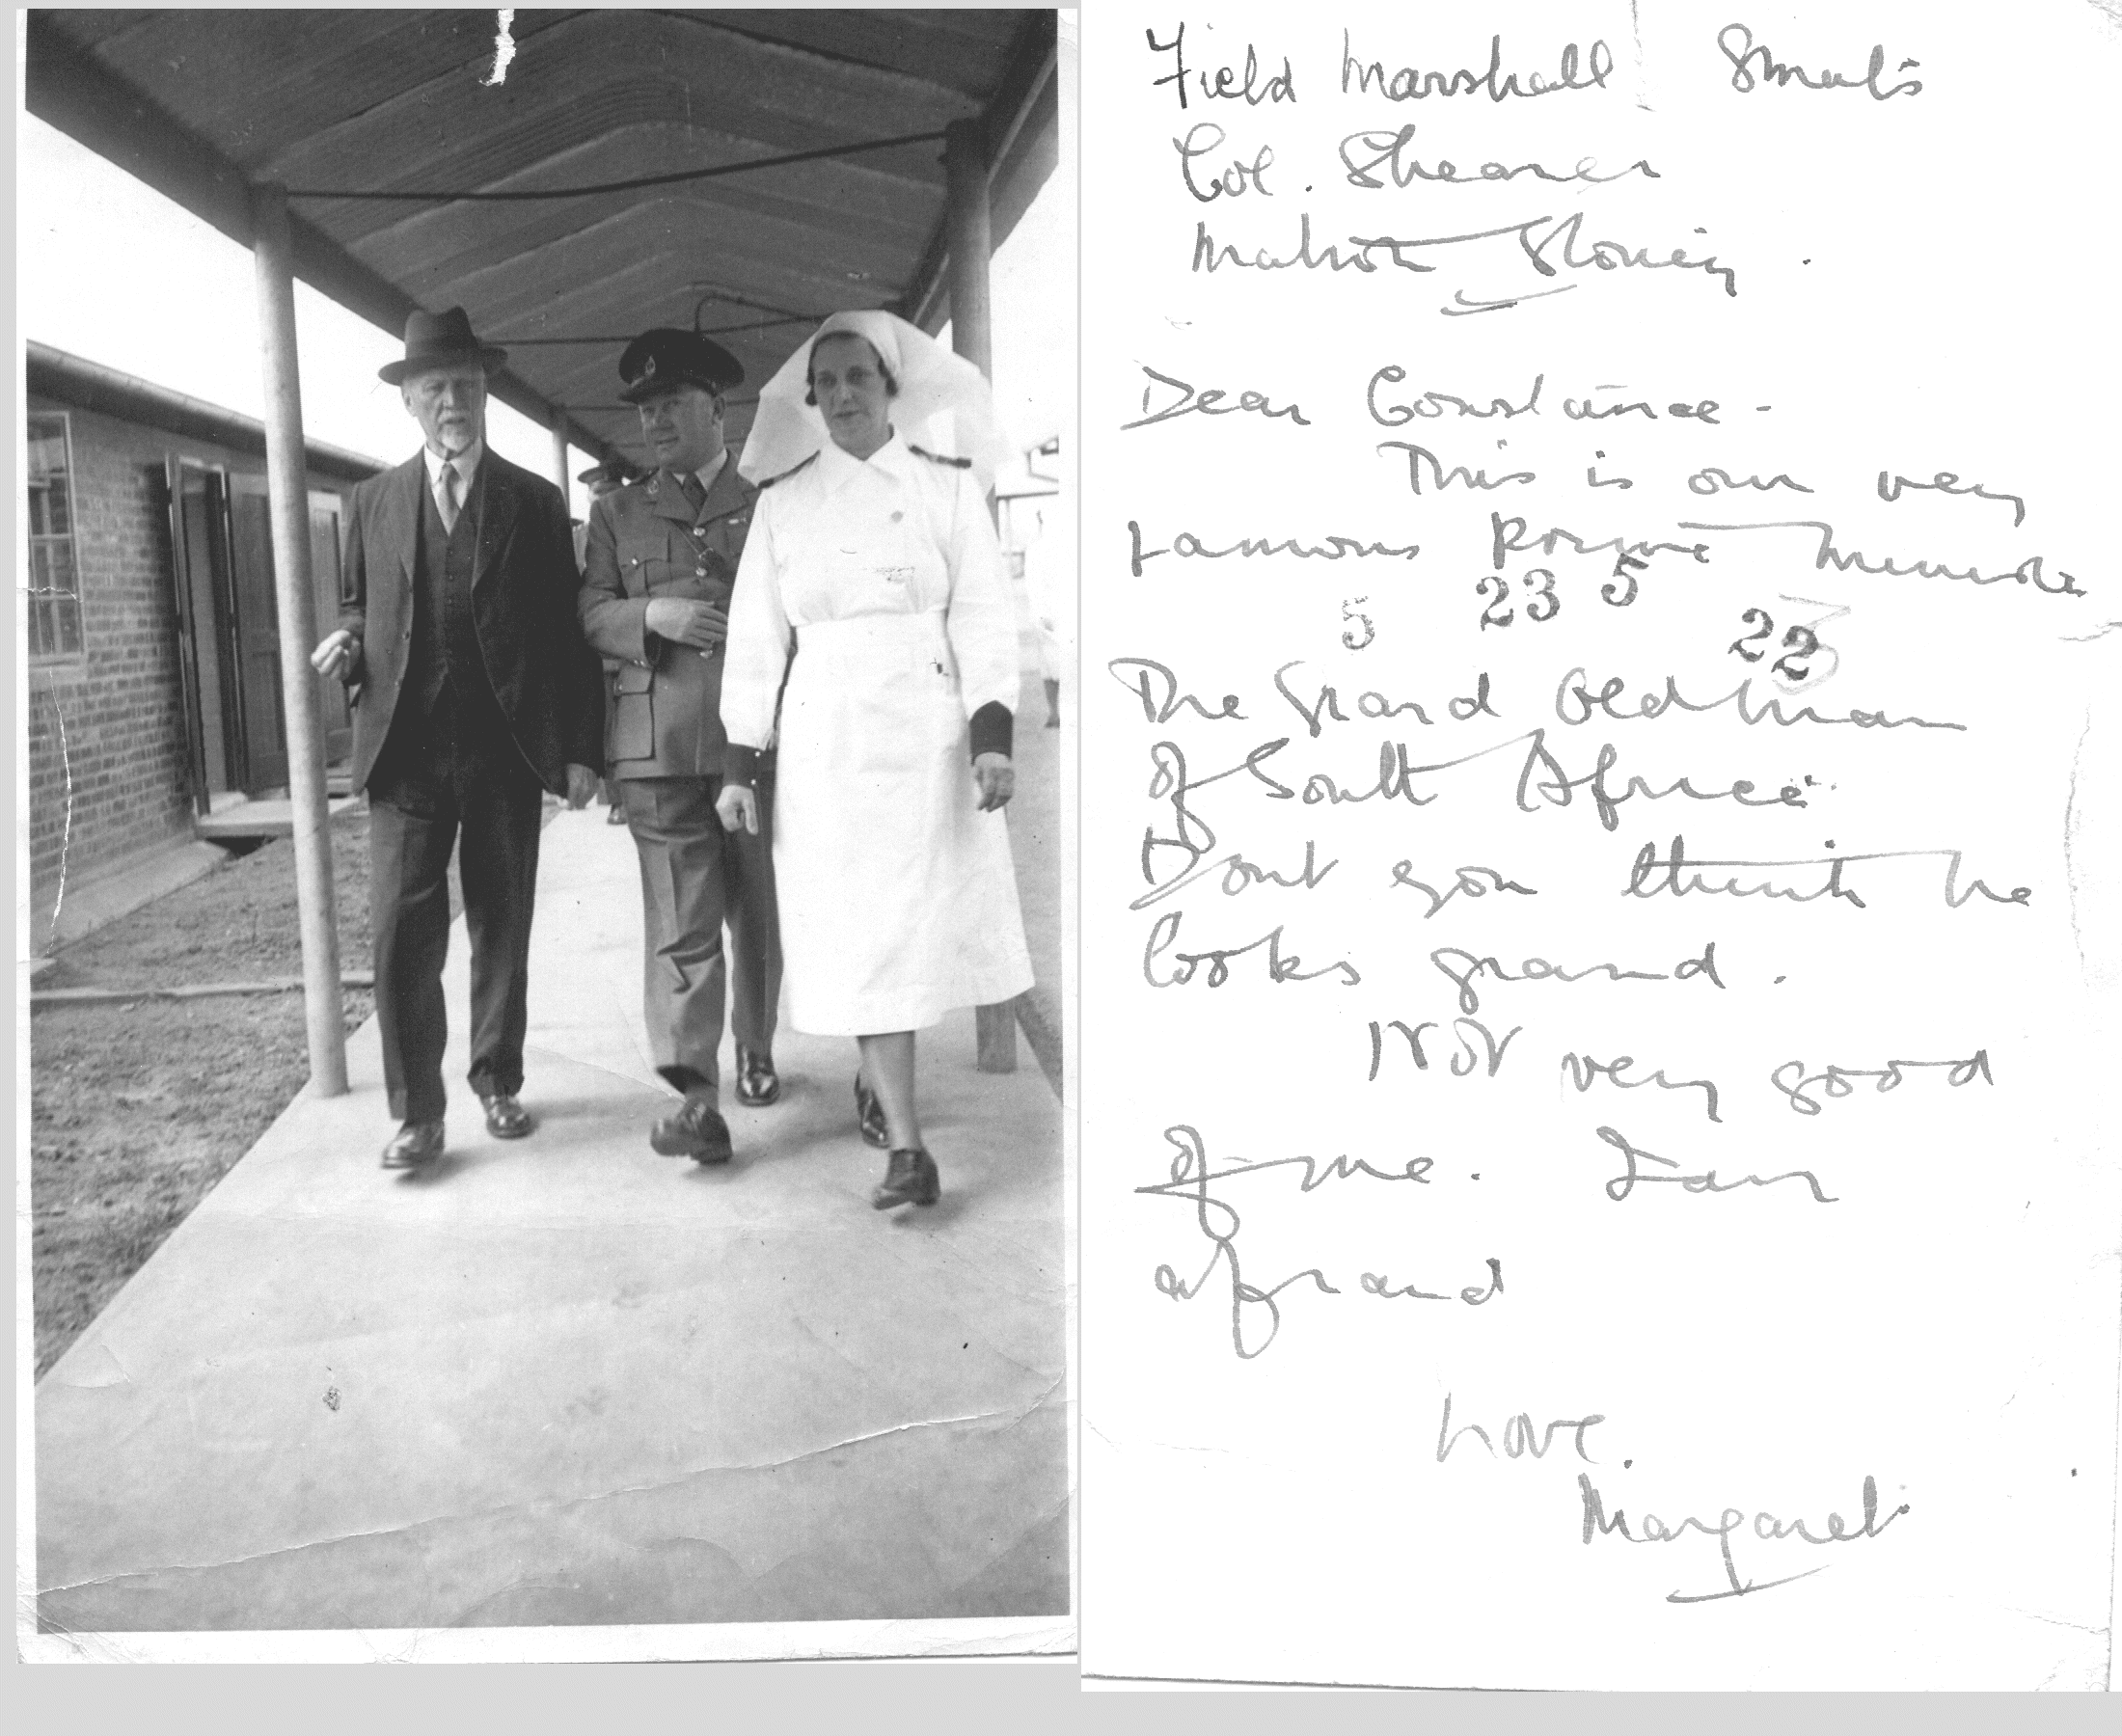 Field Marshall Smuts
Col. Shearer
Matron Stoney.
Dear Constance -
This is our very
famous Prime Minister
5 23 5
22
The Grand Old Man
of South Africa.
Dont you think he
looks grand.
Not very good
of me. I am
afraid
Love.
Margaret